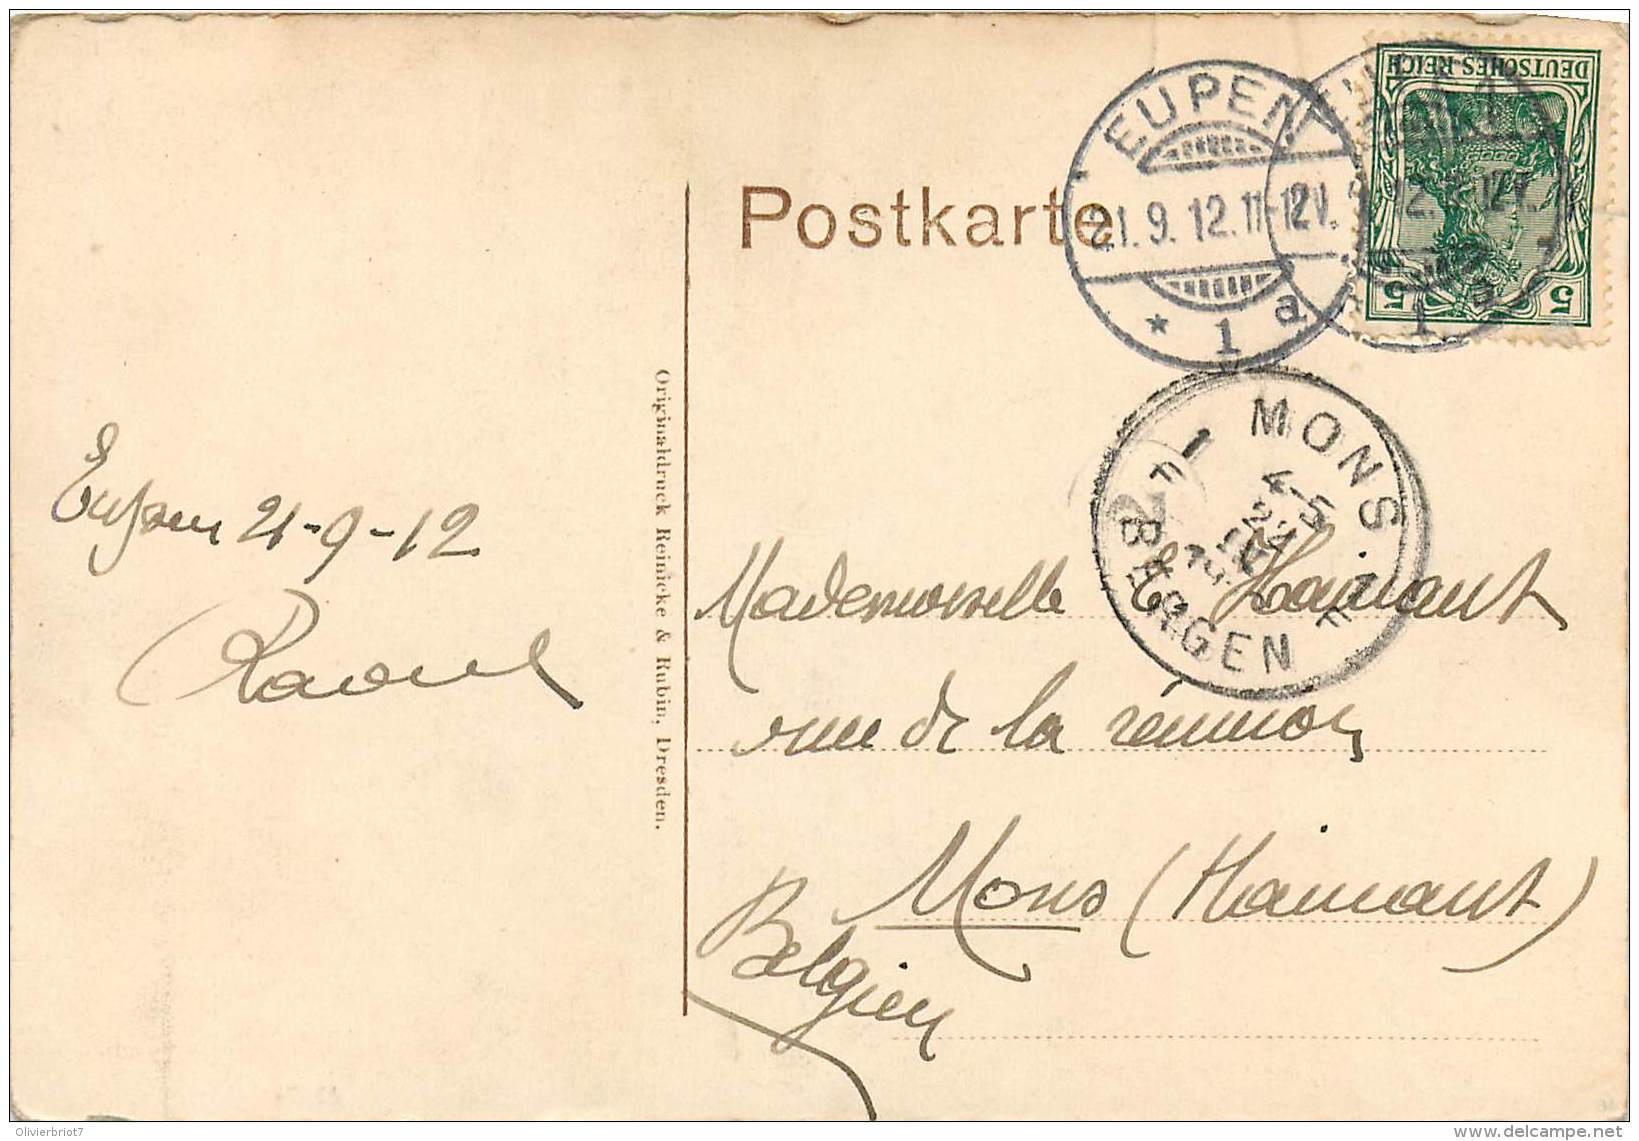 Postkarte
DEUTSCHES REICH
5 5
EUPEN
21.9.12.11-12V.
* 1 a
1
MONS
4-5
22
IX
F F
BERGEN
Originaldruck Reinicke & Rubin, Dresden.
Eupen 21-9-12
Raoul
Mademoiselle E. Hainaut
rue de la réunion
Mons (Hainaut)
Belgien
Olivierbriot7
delcampe.net